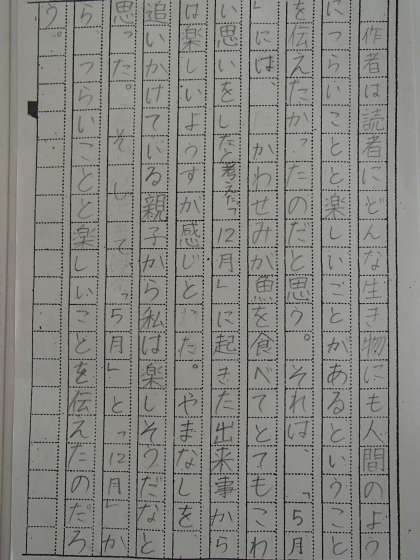 作者は読者にどんな生き物にも人間のよう
につらいことと楽しいことがあるということ
を伝えたかったのだと思う。それは、「5月
」には、かわせみが魚を食べてとてもこわ
い思いをしたと考えた。「12月」に起きた出来事から
は楽しいようすが感じとった。やまなしを
追いかけている親子から私は楽しそうだなと
思った。そして、「5月」と「12月」か
ら つらいことと楽しいことを伝えたのだろ
う。